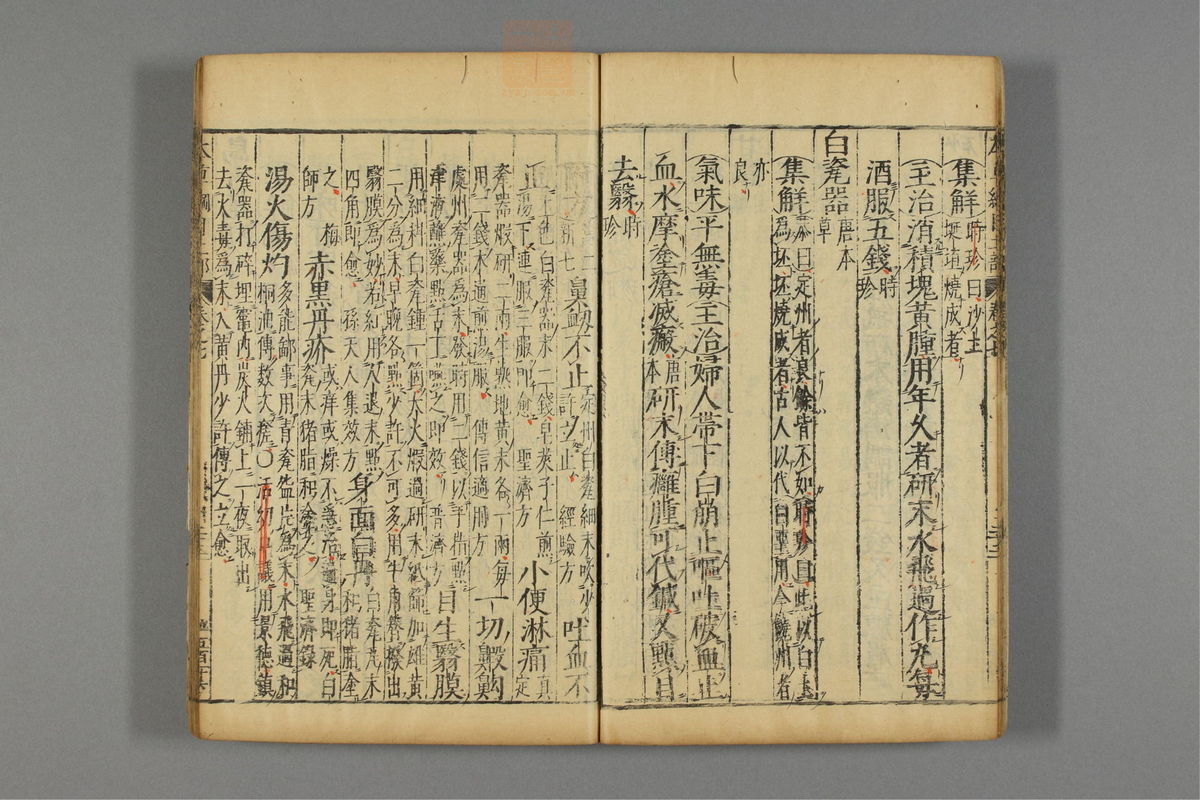 集解時珍曰沙土
埏埴燒成者
主治消積塊黃腫用年久者研末水飛過作丸每
酒服五錢時
珍
白瓷器唐本
草
集解恭曰定州者良餘皆不如時珍曰此以白土
為坯坯燒成者古人以代白堊用今饒州者
亦
良
氣味平無毒主治婦人帶下白崩止嘔吐破血止
血水摩塗瘡滅瘢唐
本研末傅癰腫可代鍼又點目
去翳時
珍
附方新七鼻衄不止定州白瓷細末吹少
許立止經驗方吐血不
白瓷器末二錢皂莢子仁煎
湯下連服三服即愈聖濟方小便淋痛真定
瓷器煅研二兩生熟地黃末各一兩每
用二錢木通煎湯服傳信適用方一切齁齁
處州瓷器為末發時用二錢以手指點
津液蘸藥點舌下嚥之即效普濟方目生翳膜
用細料白瓷鍾一箇大火煅過研末紙篩加雄黃
二分為末早晚各點少許不可多用牛角簪撥出
翳膜為妙若紅用人退末點
四角即愈孫天人集效方身面白丹白瓷瓦末
猪脂和塗
之梅
師方赤黑丹疥或痒或燥不急治遍身即死白
瓷末猪脂和塗之聖濟錄
湯火傷灼多能鄙事用青瓷盌片為末水飛過和
桐油傅數次瘥○活幼口議用景德鎮
瓷器打碎埋竈內炭火鋪上一夜取出
去火毒為末入黃丹少許傅之立愈